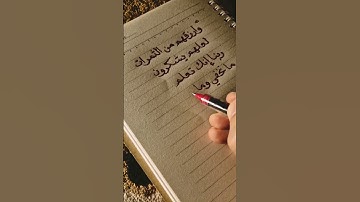 "وارزقهم من الثمرات
لعلهم يشكرون
ربنا إنك تعلم
ما نخفي وما